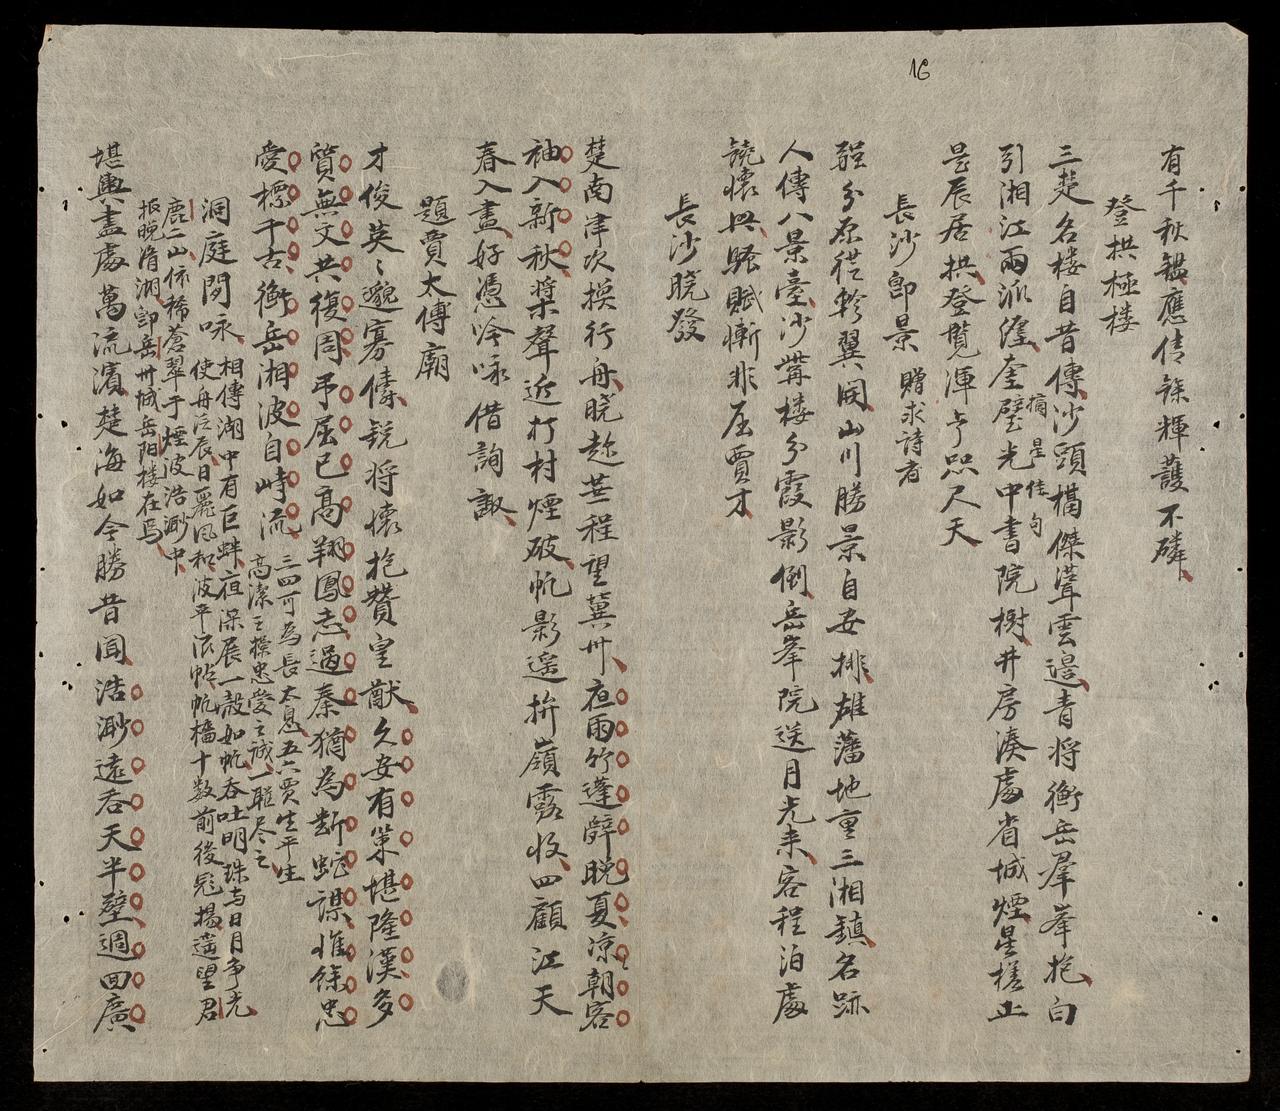 16
有千秋鑑應借餘輝護不磷
登拱極楼
三楚名楼自昔傳沙頭搆傑聳雲邊青将衡岳羣峯抱白
引湘江兩派纏奎璧光中書院樹井房湊處省城煙星槎止
摘星佳句
是辰居拱登覧渾亐咫尺天
長沙即景 贈求詩者
弪分原従軫翼開山川勝景自安排雄藩地重三湘鎮名跡
人傳八景臺沙觜楼分霞影倒岳峯院送月光来客程泊處
饒懷興騷賦慚非屈賈才
長沙曉發
楚南津次換行舟曉趂莣程望冀州夜雨竹蓬辤晩夏凉朝客
袖入新秋槳聲近打村煙破帆影遥拚嶺露收四顧江天
春入畫好憑吟咏借詢諏
題賈太傅廟
才俊英〻邈寡儔鋭将懷抱賛皇猷久安有策堪隆漢多
質無文共復周弔屈已髙翔鳳志過秦猶為斷蛇謀惟餘忠
愛標千古衡岳湘波自峙流 三四可為長太息五六賈生平生
高潔之操忠愛之誠一聮尽之
洞庭閒咏 相傳湖中有巨蚌夜深展一殼如帆吞吐明珠与日月争光
使舟泛辰日麗風和波平浪帖帆檣十数前後髟揚遥望君
鹿二山依稀蒼翠于煙波浩渺中
抵晩湑湖即岳卅城岳阳楼在焉
堪輿盡處萬流濱楚海如今勝昔聞浩渺遠吞天半壁週回廣